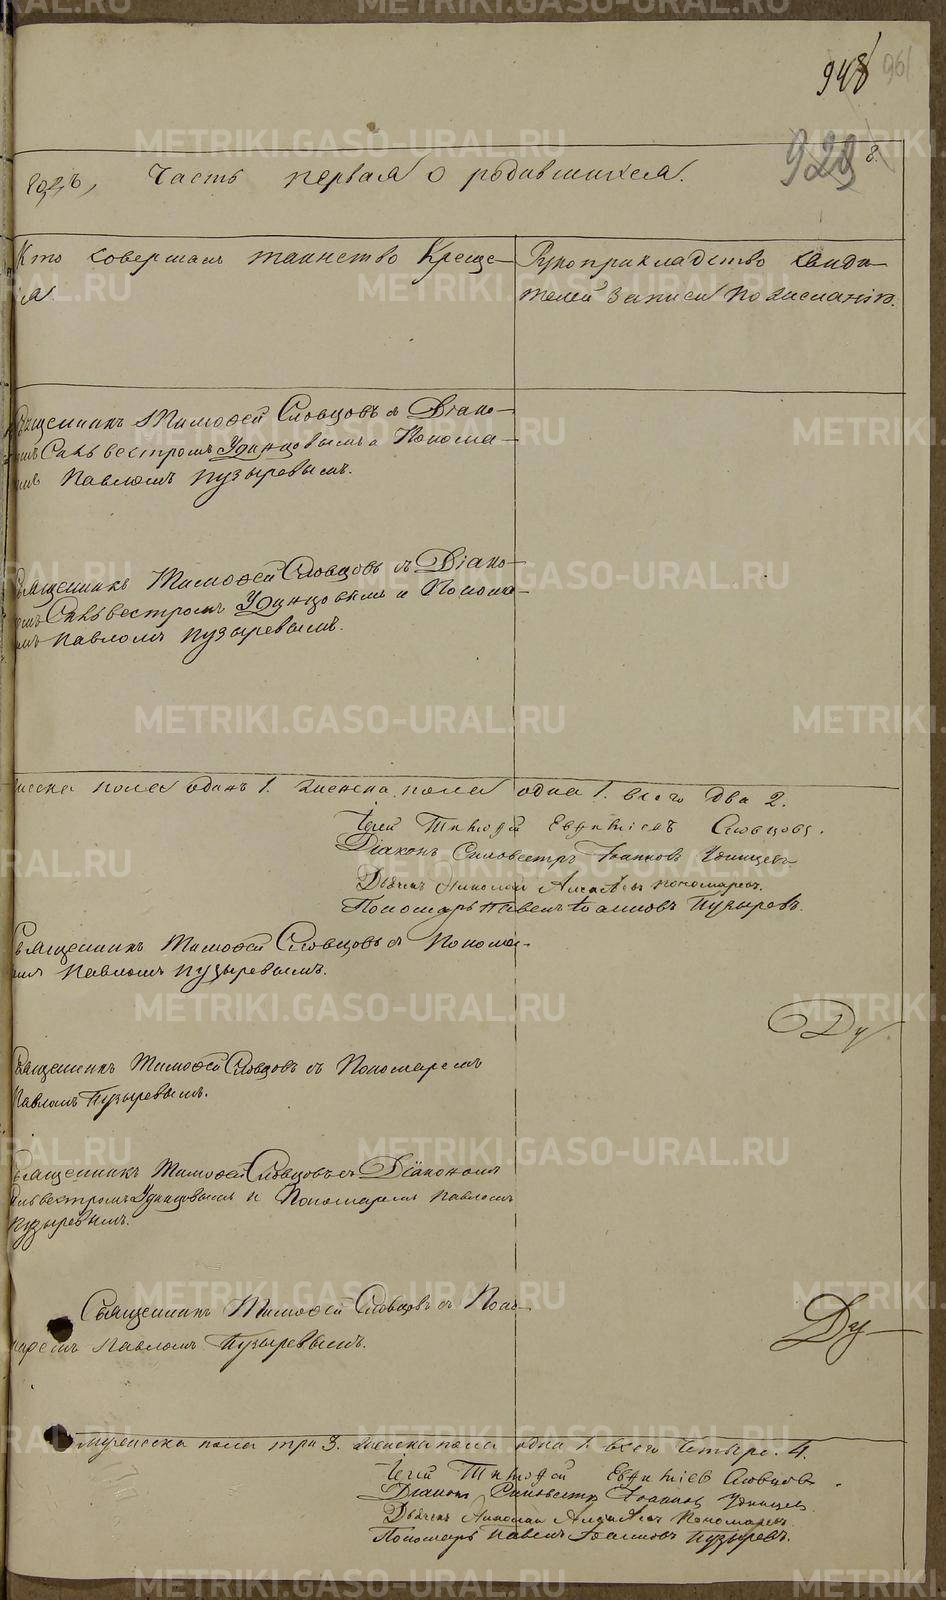 948
961
929
8.
годъ, Часть первая о родившихся.
Кто совершалъ таинство Креще-
ія.
Рукоприкладство свидѣ-
телей записи по желанію.
Священникъ Тимоѳей Словцовъ съ Діако-
номъ Сильвестромъ Удинцовымъ и Понома-
Павломъ Пузыревымъ.
Священникъ Тимоѳей Словцовъ съ Діако-
номъ Сильвестромъ Удинцовымъ и Понома-
Павломъ Пузыревымъ.
пола одинъ 1. женска пола одна 1. всего два 2.
Іерей Тимоѳей Евѳиміевъ Словцовъ.
Діаконъ Сильвестръ Іоанновъ Удинцевъ
Дьячекъ Николай Пономаревъ.
Пономарь Павелъ Іоанновъ Пузыревъ.
Священникъ Тимоѳей Словцовъ съ Понома-
Павломъ Пузыревымъ.
Священникъ Тимоѳей Словцовъ съ Пономаремъ
Павломъ Пузыревымъ.
Священникъ Тимоѳей Словцовъ съ Діакономъ
Сильвестромъ Удинцовымъ и Пономаремъ Павломъ
Пузыревымъ.
Священникъ Тимоѳей Словцовъ съ Поно-
маремъ Павломъ Пузыревымъ.
Мужеска пола три 3. женска пола одна 1. всего четыре. 4.
Іерей Тимоѳей Евѳиміевъ Словцовъ.
Діаконъ Сильвестръ Іоанновъ Удинцев
Дьячекъ Николай Пономаревъ.
Пономарь Павелъ Іоанновъ Пузыревъ.
METRIKI.GASO-URAL.RU